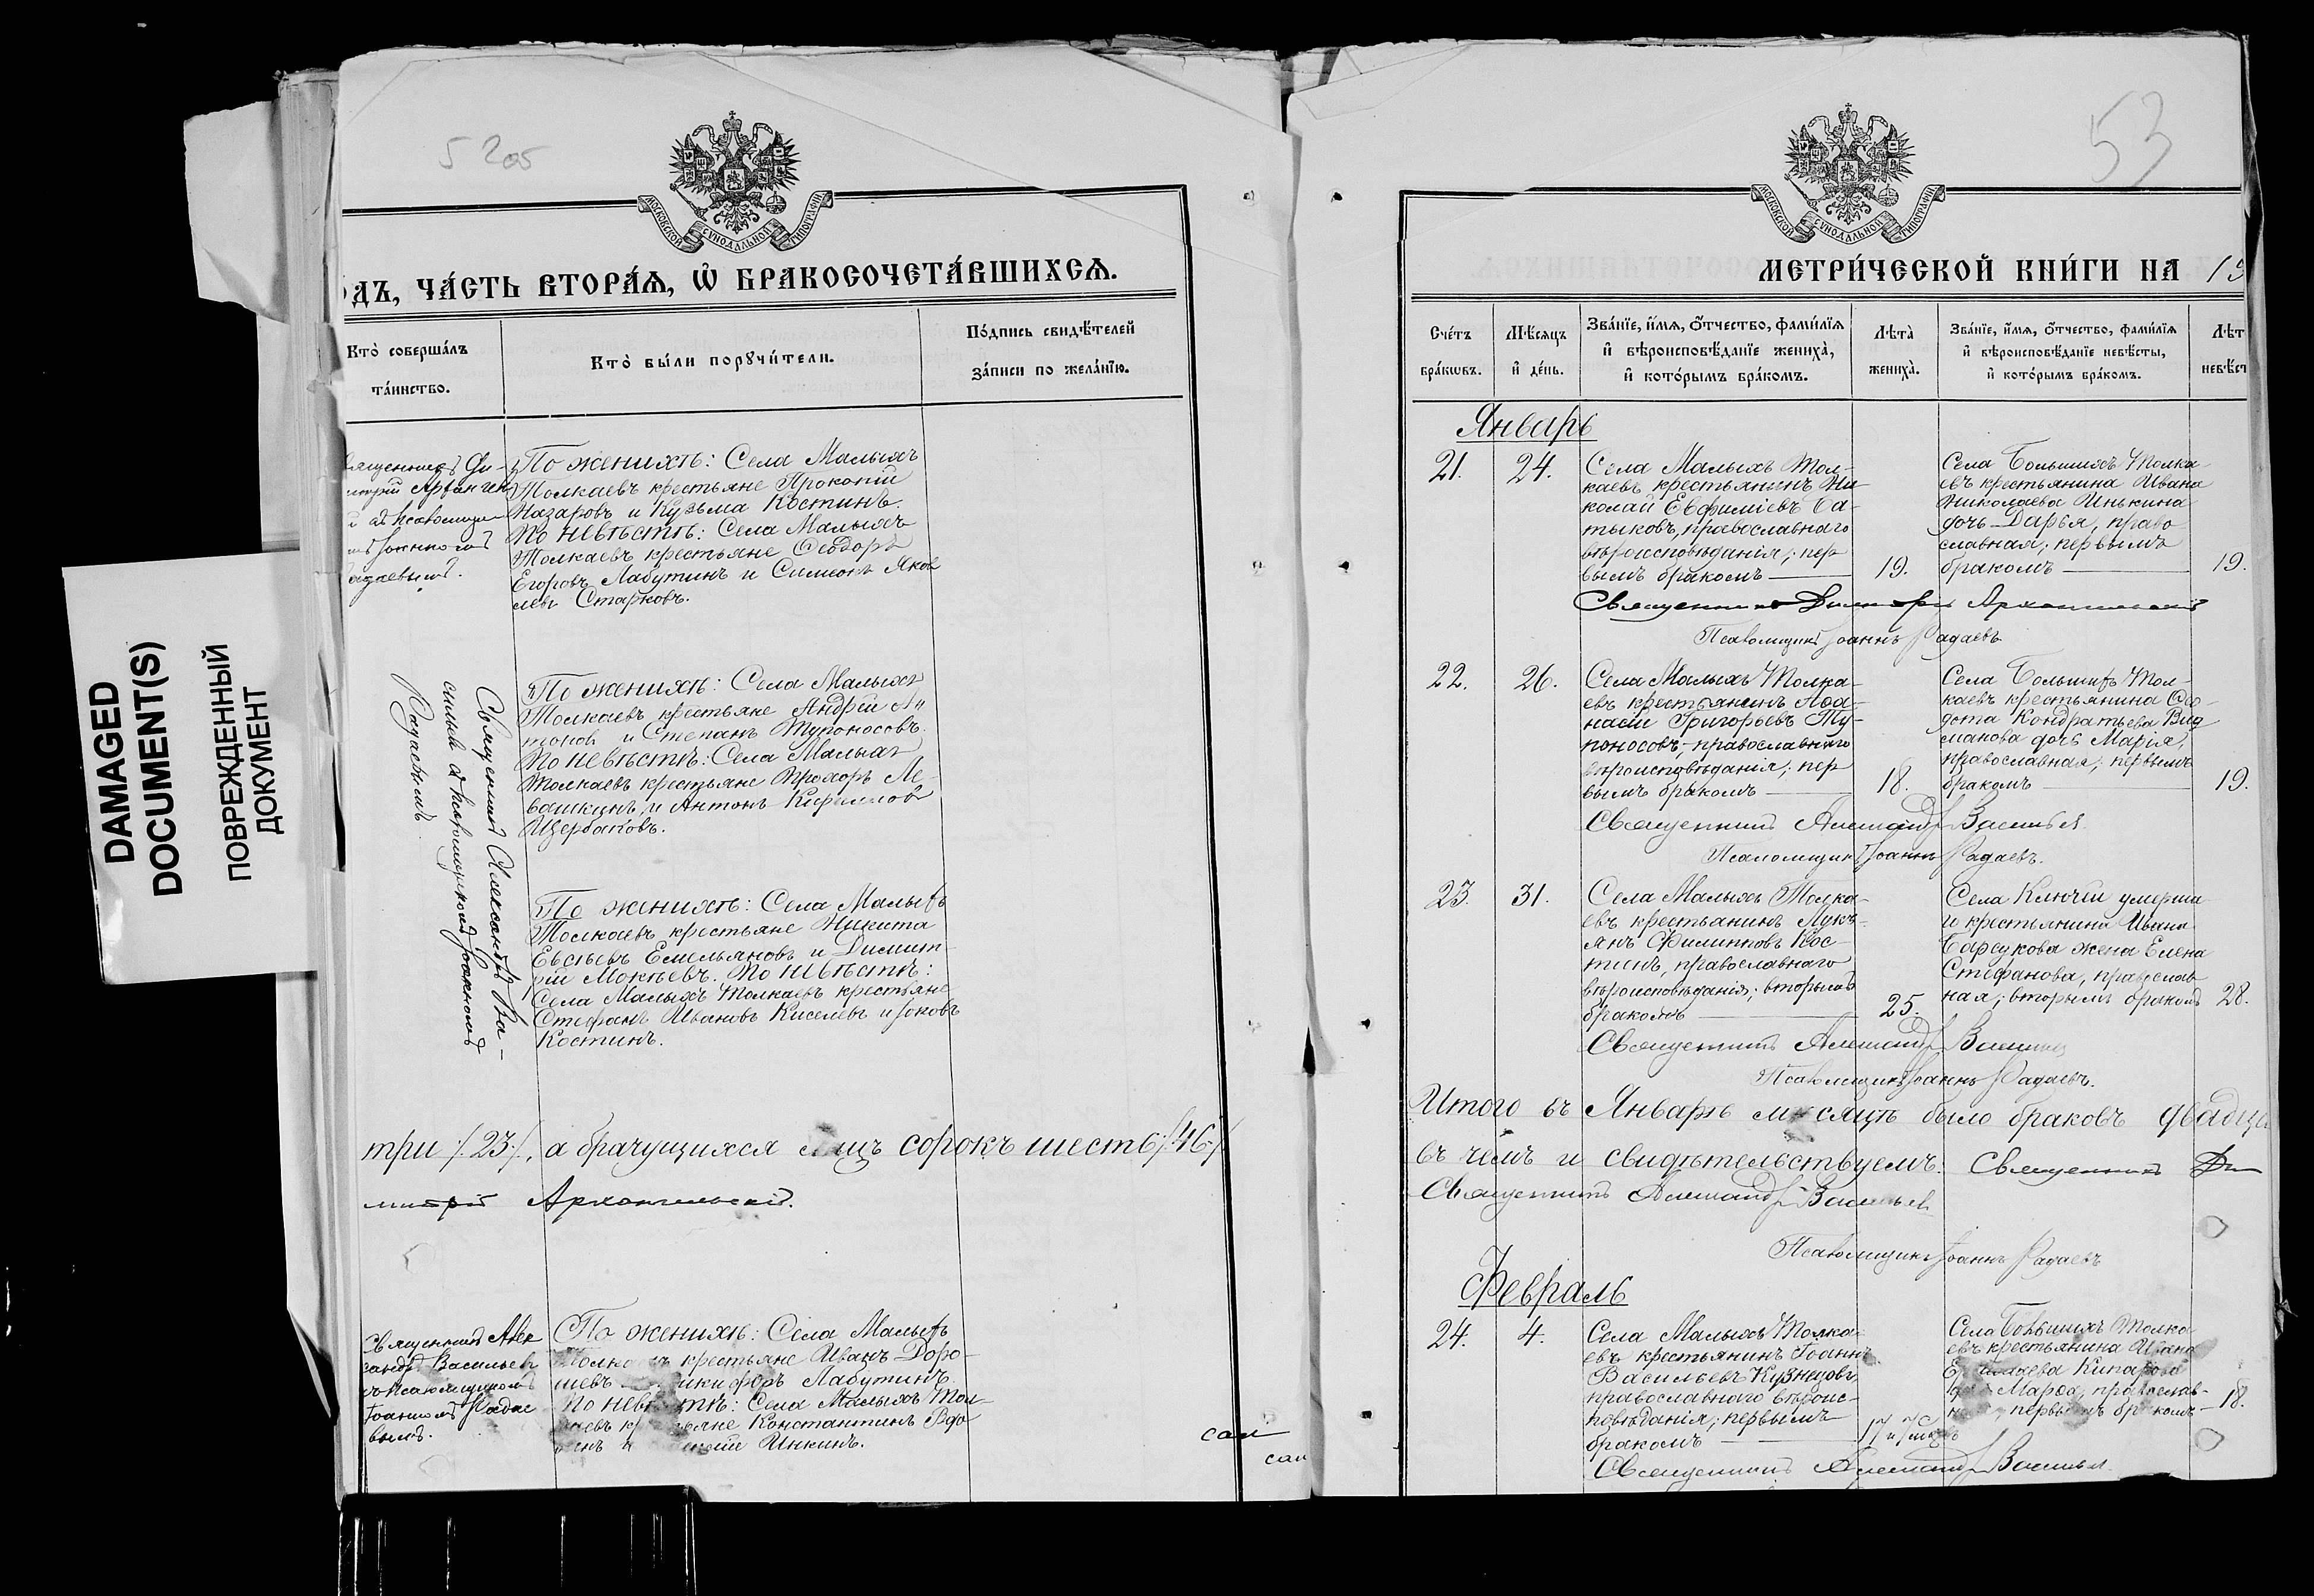 DAMAGED
DOCUMENT(S)
ПОВРЕЖДЕННЫЙ
ДОКУМЕНТ
МОСКОВСКОЙ СѴНОДАЛЬНОЙ ТИПОГРАФІИ
ДЪ, ЧА́СТЬ ВТОРА́Я, Ѽ БРАКОСОЧЕТА́ВШИХСЯ.
Кто̀ соверша́лъ
та́инство.
Кто̀ бы́ли порꙋчи́тели.
По́дпись свидѣ́телей
за́писи по жела́нїю.
По женихѣ: Села Малыхъ
Толкаевъ крестьяне Прокопій
Назаровъ и Кузьма Костинъ.
По невѣстѣ: Села Малыхъ
Толкаевъ крестьяне Ѳеодоръ
Егоровъ Лабутинъ и Симеонъ Яков
левъ Старковъ.
Священникъ Александръ Ва-
сильев съ псаломщикомъ Іоанномъ
Радаевымъ.
По женихѣ: Села Малыхъ
Толкаевъ крестьяне Андрей Ан
тонов и Степанъ Тупоносовъ.
По невѣстѣ: Села Малыхъ
Толкаевъ крестьяне Прохоръ Ле-
вашкинъ и Антонъ
Щербаковъ.
По женихѣ: Села Малыхъ
Толкаевъ крестьяне Никита
Евсѣевъ Емельяновъ и Димит-
рій Мокѣевъ. По невѣстѣ:
Села Малыхъ Толкаевъ крестьяне
Стефанъ Ивановъ Киселевъ и Іаковъ
Костинъ.
три /.23./, а брачущихся лицъ сорокъ шесть /.46./
митрій Архангельскій.
Священникъ Алек
сандръ Васильев
съ псаломщикомъ
Іоанномъ Радае
вымъ.
По женихѣ: Села Малыхъ
крестьяне Иванъ Доро-
Лабутинъ.
По невѣстѣ: Села Малыхъ Тол-
каевъ крестьяне Константинъ Вдо
Инкинъ.
53
МОСКОВСКОЙ СѴНОДАЛЬНОЙ ТИПОГРАФІИ
МЕТРИ́ЧЕСКОЙ КНИ́ГИ НА 19
Сче́тъ
бра́кѡвъ.
Мѣ́сяцъ
и҆ де́нь.
Зва́нїе, и҆́мя, ѻ҆́тчество, фами́лїя
и҆ вѣроисповѣ́данїе жениха̀,
и҆ кото́рымъ бра́комъ.
Лѣта̀
жениха̀.
Зва́нїе, и҆́мя, ѻ҆́тчество, фами́лїя
и҆ вѣроисповѣ́данїе невѣ́сты,
и҆ кото́рымъ бра́комъ.
Лѣт
невѣ́ст
Январь
21.
24.
Села Малыхъ Тол-
каевъ крестьянинъ Ни-
колай Евфиміевъ Ба-
тыковъ, православнаго
вѣроисповѣданія; пер
вымъ бракомъ
19.
Села Большихъ Толка-
евъ крестьянина Ивана
Николаева Инькина
дочь Дарья, право
славная; первымъ
бракомъ
19.
Священникъ Димитрій Архангельскій
Псаломщикъ Іоаннъ Радаевъ
22.
26.
Села Малыхъ Толка-
евъ крестьянинъ Аѳа-
насій Григорьевъ Ту-
поносовъ, православнаго
вѣроисповѣданія; пер
вымъ бракомъ
18.
Села Большихъ Тол-
каевъ крестьянина Ѳео-
дота Кондратьева Вид
дочь Марія,
православная; первымъ
бракомъ
19.
Священникъ Александръ Васильев
Псаломщикъ Іоаннъ Радаевъ.
23.
31.
Села Малыхъ Толка-
евъ крестьянинъ Лукь-
янъ Филипповъ Кос-
тинъ, православнаго
вѣроисповѣданія; вторымъ
бракомъ
25.
Села Ключей умерша
го крестьянина Ивана
Барсукова жена Елена
Стефанова, православ
ная; вторымъ бракомъ
28.
Священникъ Александръ Васильев
Псаломщикъ Іоаннъ Радаевъ.
Итого въ Январѣ мѣсяцѣ было браковъ двадца
въ чемъ и свидѣтельствуемъ: Священникъ Ди
Священникъ Александръ Васильев
Псаломщикъ Іоаннъ Радаевъ
Февраль
24.
4.
Села Малыхъ Толка-
евъ крестьянинъ Іоаннъ
Васильевъ Кузнецовъ
православнаго вѣроис-
повѣданія; первымъ
бракомъ
Села Большихъ Толка
евъ крестьянина Ивана
Марѳа, православ-
первымъ бракомъ
18.
Священникъ Александръ Васильев